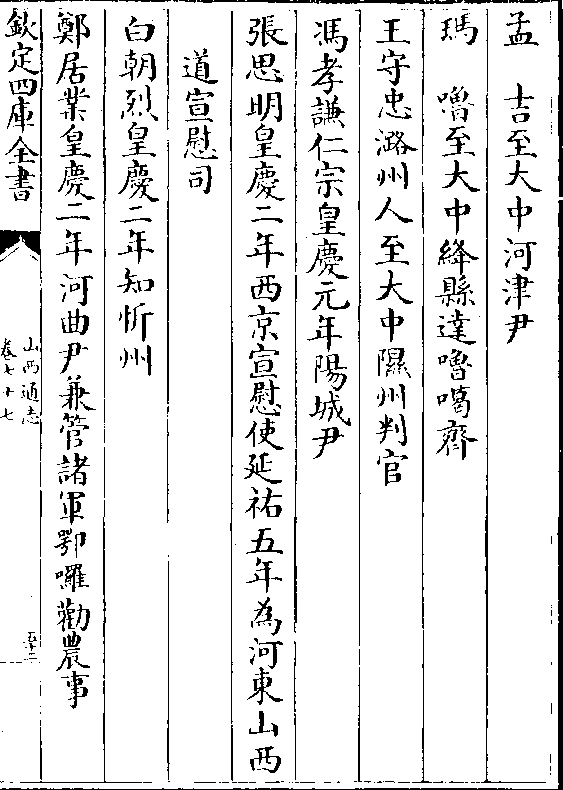 孟　吉至大中河津尹
瑪　嚕至大中絳縣達嚕噶齊
王守忠潞州人至大中隰州判官
馮孝謙仁宗皇慶元年陽城尹
張思明皇慶二年西京宣慰使延祐五年為河東山西
道宣慰司
白朝烈皇慶二年知忻州
鄭居業皇慶二年河曲尹兼管諸軍鄂囉勸農事
欽定四庫全書
山西通志
卷七十七